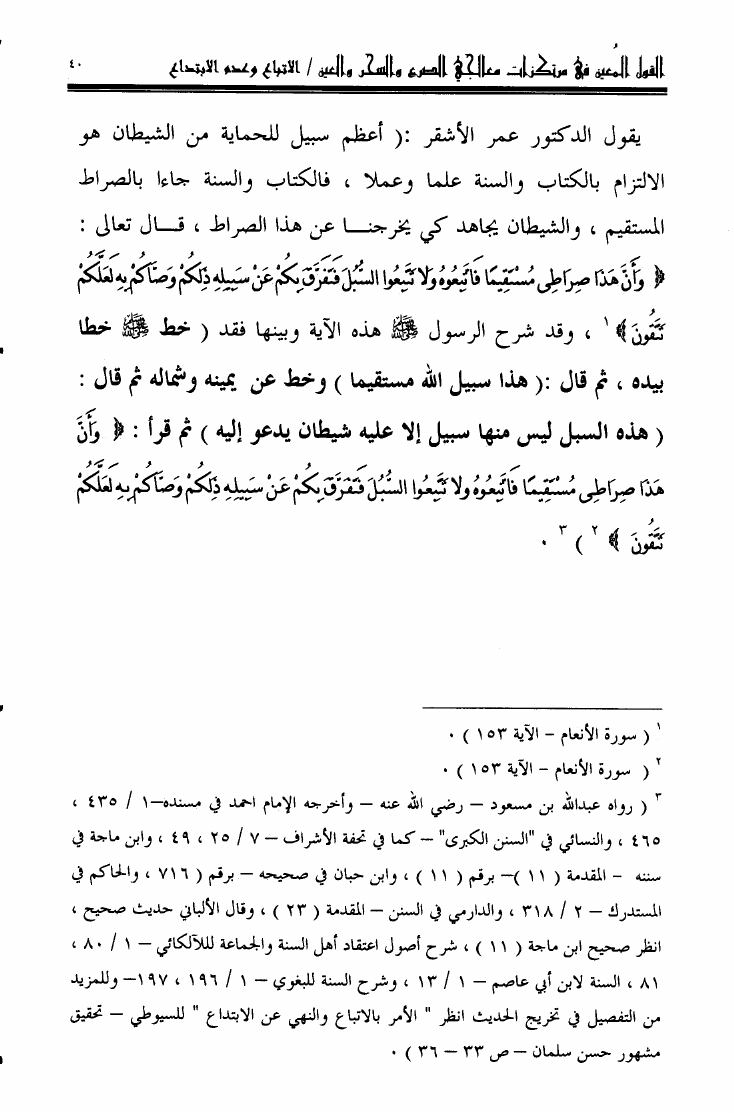 القول المُعين في مرتكزات معالجي الصرع والسحر والعين / الاتباع وعدم الابتداع ٤٠
يقول الدكتور عمر الأشقر :( أعظم سبيل للحماية من الشيطان هو
الالتزام بالكتاب والسنة علما وعملا ، فالكتاب والسنة جاءا بالصراط
المستقيم ، والشيطان يجاهد كي يخرجنا عن هذا الصراط ، قال تعالى :
﴿ وَأَنَّ هَذَا صِرَاطِي مُسْتَقِيمًا فَاتَّبِعُوهُ وَلَا تَتَّبِعُوا السُّبُلَ فَتَفَرَّقَ بِكُمْ عَنْ سَبِيلِهِ ذَلِكُمْ وَصَّاكُمْ بِهِ لَعَلَّكُمْ
تَتَّقُونَ ﴾ ١ ، وقد شرح الرسول ﷺ هذه الآية وبينها فقد ( خط ﷺ خطا
بيده ، ثم قال :( هذا سبيل الله مستقيما ) وخط عن يمينه وشماله ثم قال :
( هذه السبل ليس منها سبيل إلا عليه شيطان يدعو إليه ) ثم قرأ : ﴿ وَأَنَّ
هَذَا صِرَاطِي مُسْتَقِيمًا فَاتَّبِعُوهُ وَلَا تَتَّبِعُوا السُّبُلَ فَتَفَرَّقَ بِكُمْ عَنْ سَبِيلِهِ ذَلِكُمْ وَصَّاكُمْ بِهِ لَعَلَّكُمْ
تَتَّقُونَ ﴾ ٢ ) ٣ .
١ ( سورة الأنعام – الآية ١٥٣ ) .
٢ ( سورة الأنعام – الآية ١٥٣ ) .
٣ ( رواه عبدالله بن مسعود – رضي الله عنه – وأخرجه الإمام احمد في مسنده–١ / ٤٣٥ ،
٤٦٥ ، والنسائي في "السنن الكبرى" – كما في تحفة الأشراف – ٧ / ٢٥ ، ٤٩ ، وابن ماجة في
سننه – المقدمة ( ١١ )– برقم ( ١١ ) ، وابن حبان في صحيحه – برقم ( ٧١٦ ، والحاكم في
المستدرك – ٢ / ٣١٨ ، والدارمي في السنن – المقدمة ( ٢٣ ) ، وقال الألباني حديث صحيح ،
انظر صحيح ابن ماجة ( ١١ ) ، شرح أصول اعتقاد أهل السنة والجماعة لللآلكائي – ١ / ٨٠ ،
٨١ ، السنة لابن أبي عاصم – ١ / ١٣ ، وشرح السنة للبغوي – ١ / ١٩٦ ، ١٩٧– وللمزيد
من التفصيل في تخريج الحديث انظر " الأمر بالاتباع والنهي عن الابتداع " للسيوطي – تحقيق
مشهور حسن سلمان – ص ٣٣ – ٣٦ ) .